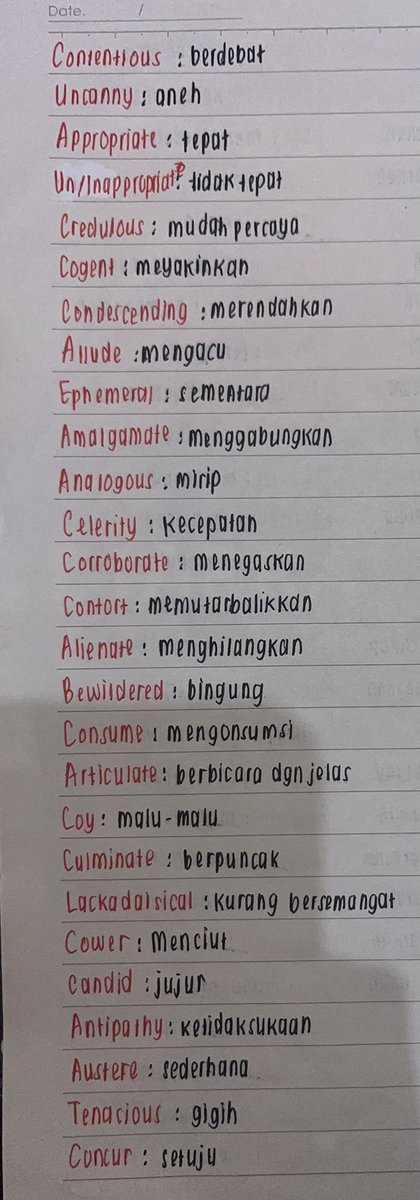 Date. /
Contentious : berdebat
Uncanny : aneh
Appropriate : tepat
Un/Inappropriate : tidak tepat
Credulous : mudah percaya
Cogent : meyakinkan
Condescending : merendahkan
Allude : mengacu
Ephemeral : sementara
Amalgamate : menggabungkan
Analogous : mirip
Celerity : kecepatan
Corroborate : menegaskan
Contort : memutarbalikkan
Alienate : menghilangkan
Bewildered : bingung
Consume : mengonsumsi
Articulate : berbicara dgn jelas
Coy : malu-malu
Culminate : berpuncak
Lackadaisical : kurang bersemangat
Cower : Menciut
candid : jujur
Antipathy : ketidaksukaan
Austere : sederhana
Tenacious : gigih
Concur : setuju